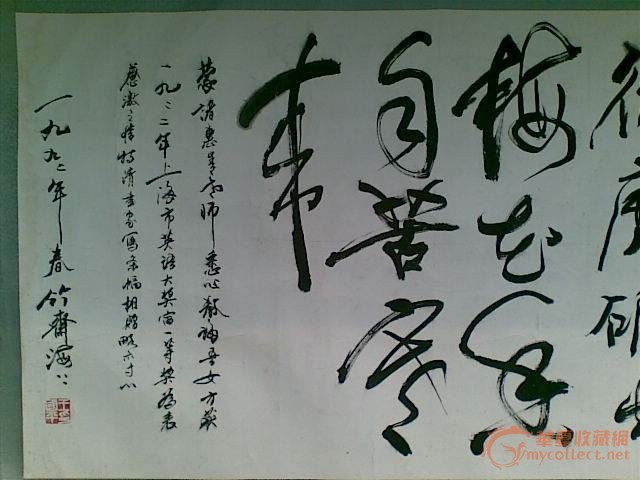 從磨砺出
梅花香
自苦寒
来
蒙请惠老师悉心教诲吾女方获
一九九二年上海市英语大奖赛一等奖为表
感激之情特请书家写条幅相赠略示寸心
一九九二年春竹斋海
华夏收藏网
mycollect.net